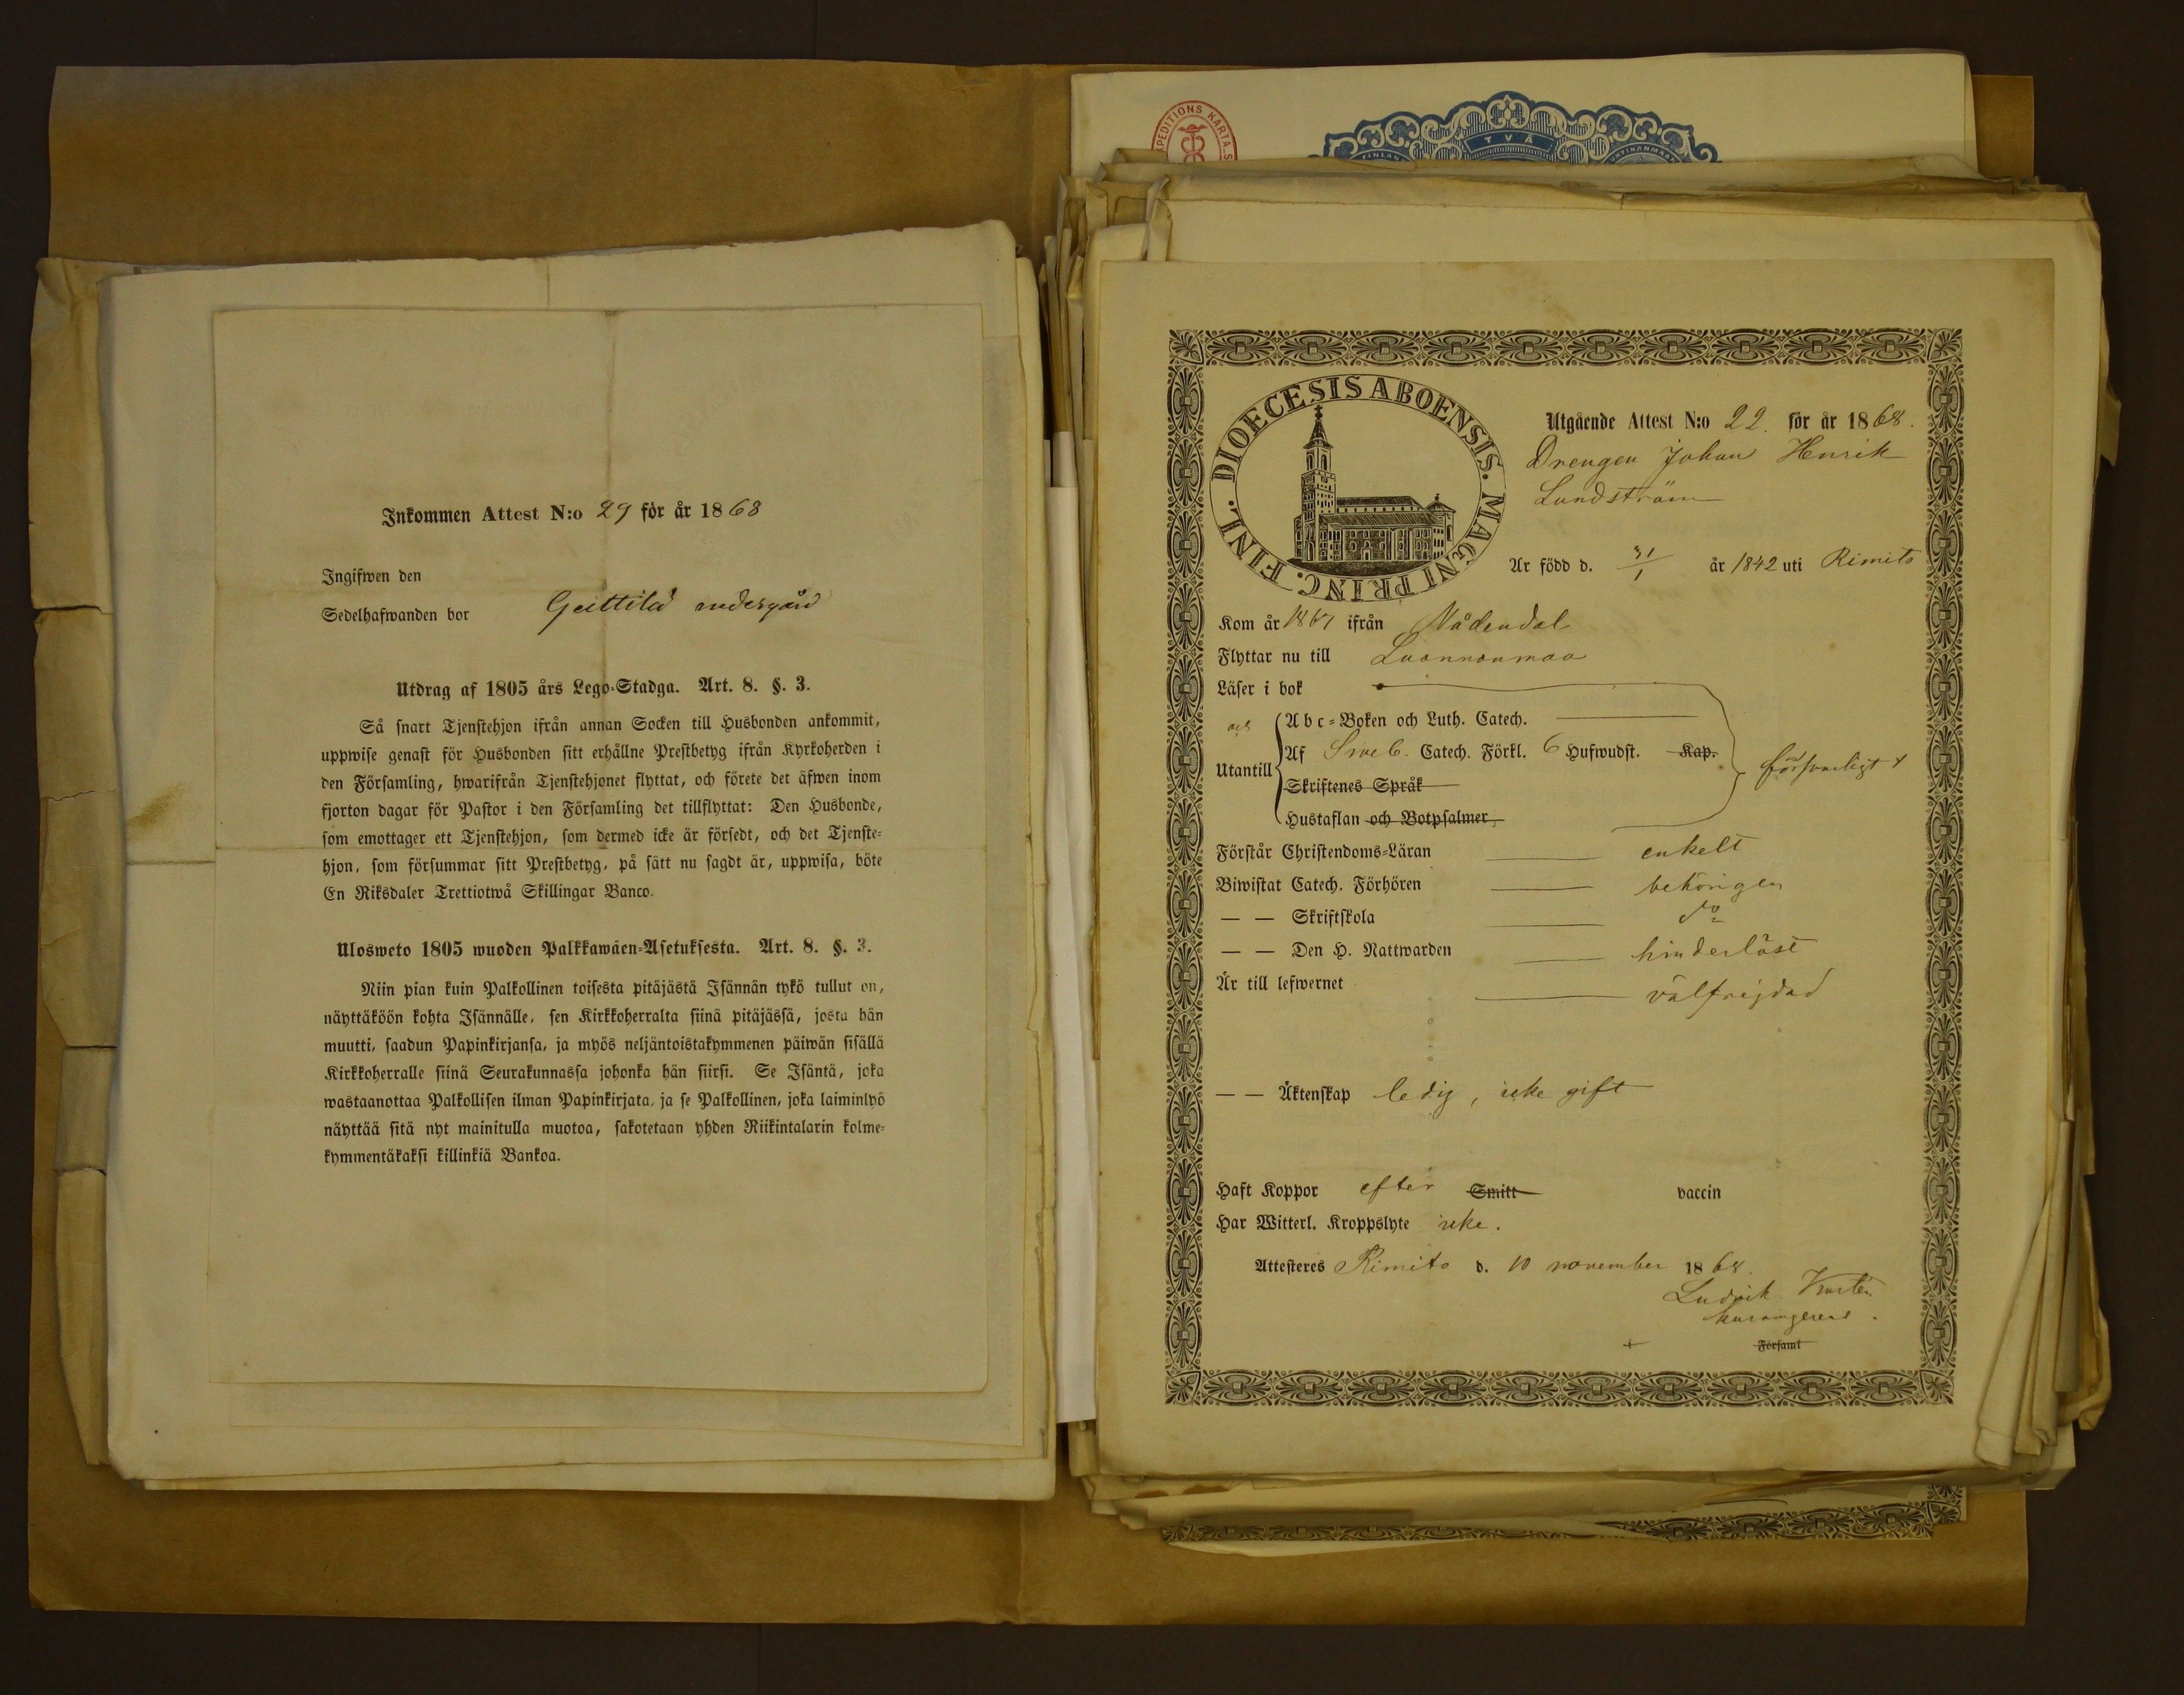 Inkommen Attest N:o 29 för år 1868
Ingifwen den
Sedelhafwanden bor
Utdrag af 1805 års Lego-Stadga. Art. 8. §. 3.
Så snart Tjenstehjon ifrån annan Socken till Husbonden ankommit,
uppwise genast för Husbonden sitt erhållne Prestbetyg ifrån Kyrkoherden i
den Församling, hwarifrån Tjenstehjonet flyttat, och förete det äfwen inom
fjorton dagar för Pastor i den Församling det tillflyttat: Den Husbonde,
som emottager ett Tjenstehjon, som dermed icke är försedt, och det Tjenste-
hjon, som försummar sitt Prestbetyg, på sätt nu sagdt är, uppwisa, böte
En Riksdaler Trettiotwå Skillingar Banco.
Ulosweto 1805 wuoden Palkkawäen-Asetuksesta. Art. 8. §. 3.
Niin pian kuin Palkollinen toisesta pitäjästä Isännän tykö tullut on,
näyttäköön kohta Isännälle, sen Kirkkoherralta siinä pitäjässä, josta hän
muutti, saadun Papinkirjansa, ja myös neljäntoistakymmenen päiwän sisällä
Kirkkoherralle siinä Seurakunnassa johonka hän siirsi. Se Isäntä, joka
wastaanottaa Palkollisen ilman Papinkirjata, ja se Palkollinen, joka laiminlyö
näyttää sitä nyt mainitulla muotoa, sakotetaan yhden Riikintalarin kolme-
kymmentäkaksi killinkiä Bankoa.
PEDITIONS KARTA.S
TVÅ
FINLAN
DIOECESIS ABOENSIS. MAGNI PRINC. FINL.
Utgående Attest N:o 22. för år 1868.
Drengen Johan Henrik
Lundström
Är född d. 31/1 år 1842 uti Rimito
Kom år 1867 ifrån Nådendal
Flyttar nu till Luonnonmaa
Läser i bok
Abc-Boken och Luth. Catech.
Utantill Af Sweb. Catech. Förkl. 6 Hufwudst. Kap. försvarligt
Skriftenes Språk
Hustaflan och Botpsalmer
Förstår Christendoms-Läran enkelt
Biwistat Catech. Förhören behörigen
— — Skriftskola do
— — Den H. Nattwarden hinderlöst
Är till lefwernet välfrejdad
— — Äktenskap ledig, icke gift
Haft Koppor efter Smitt vaccin
Har Witterl. Kroppslyte icke.
Attesteres Rimito d. 10 november 1868.
Ludvik
Församl